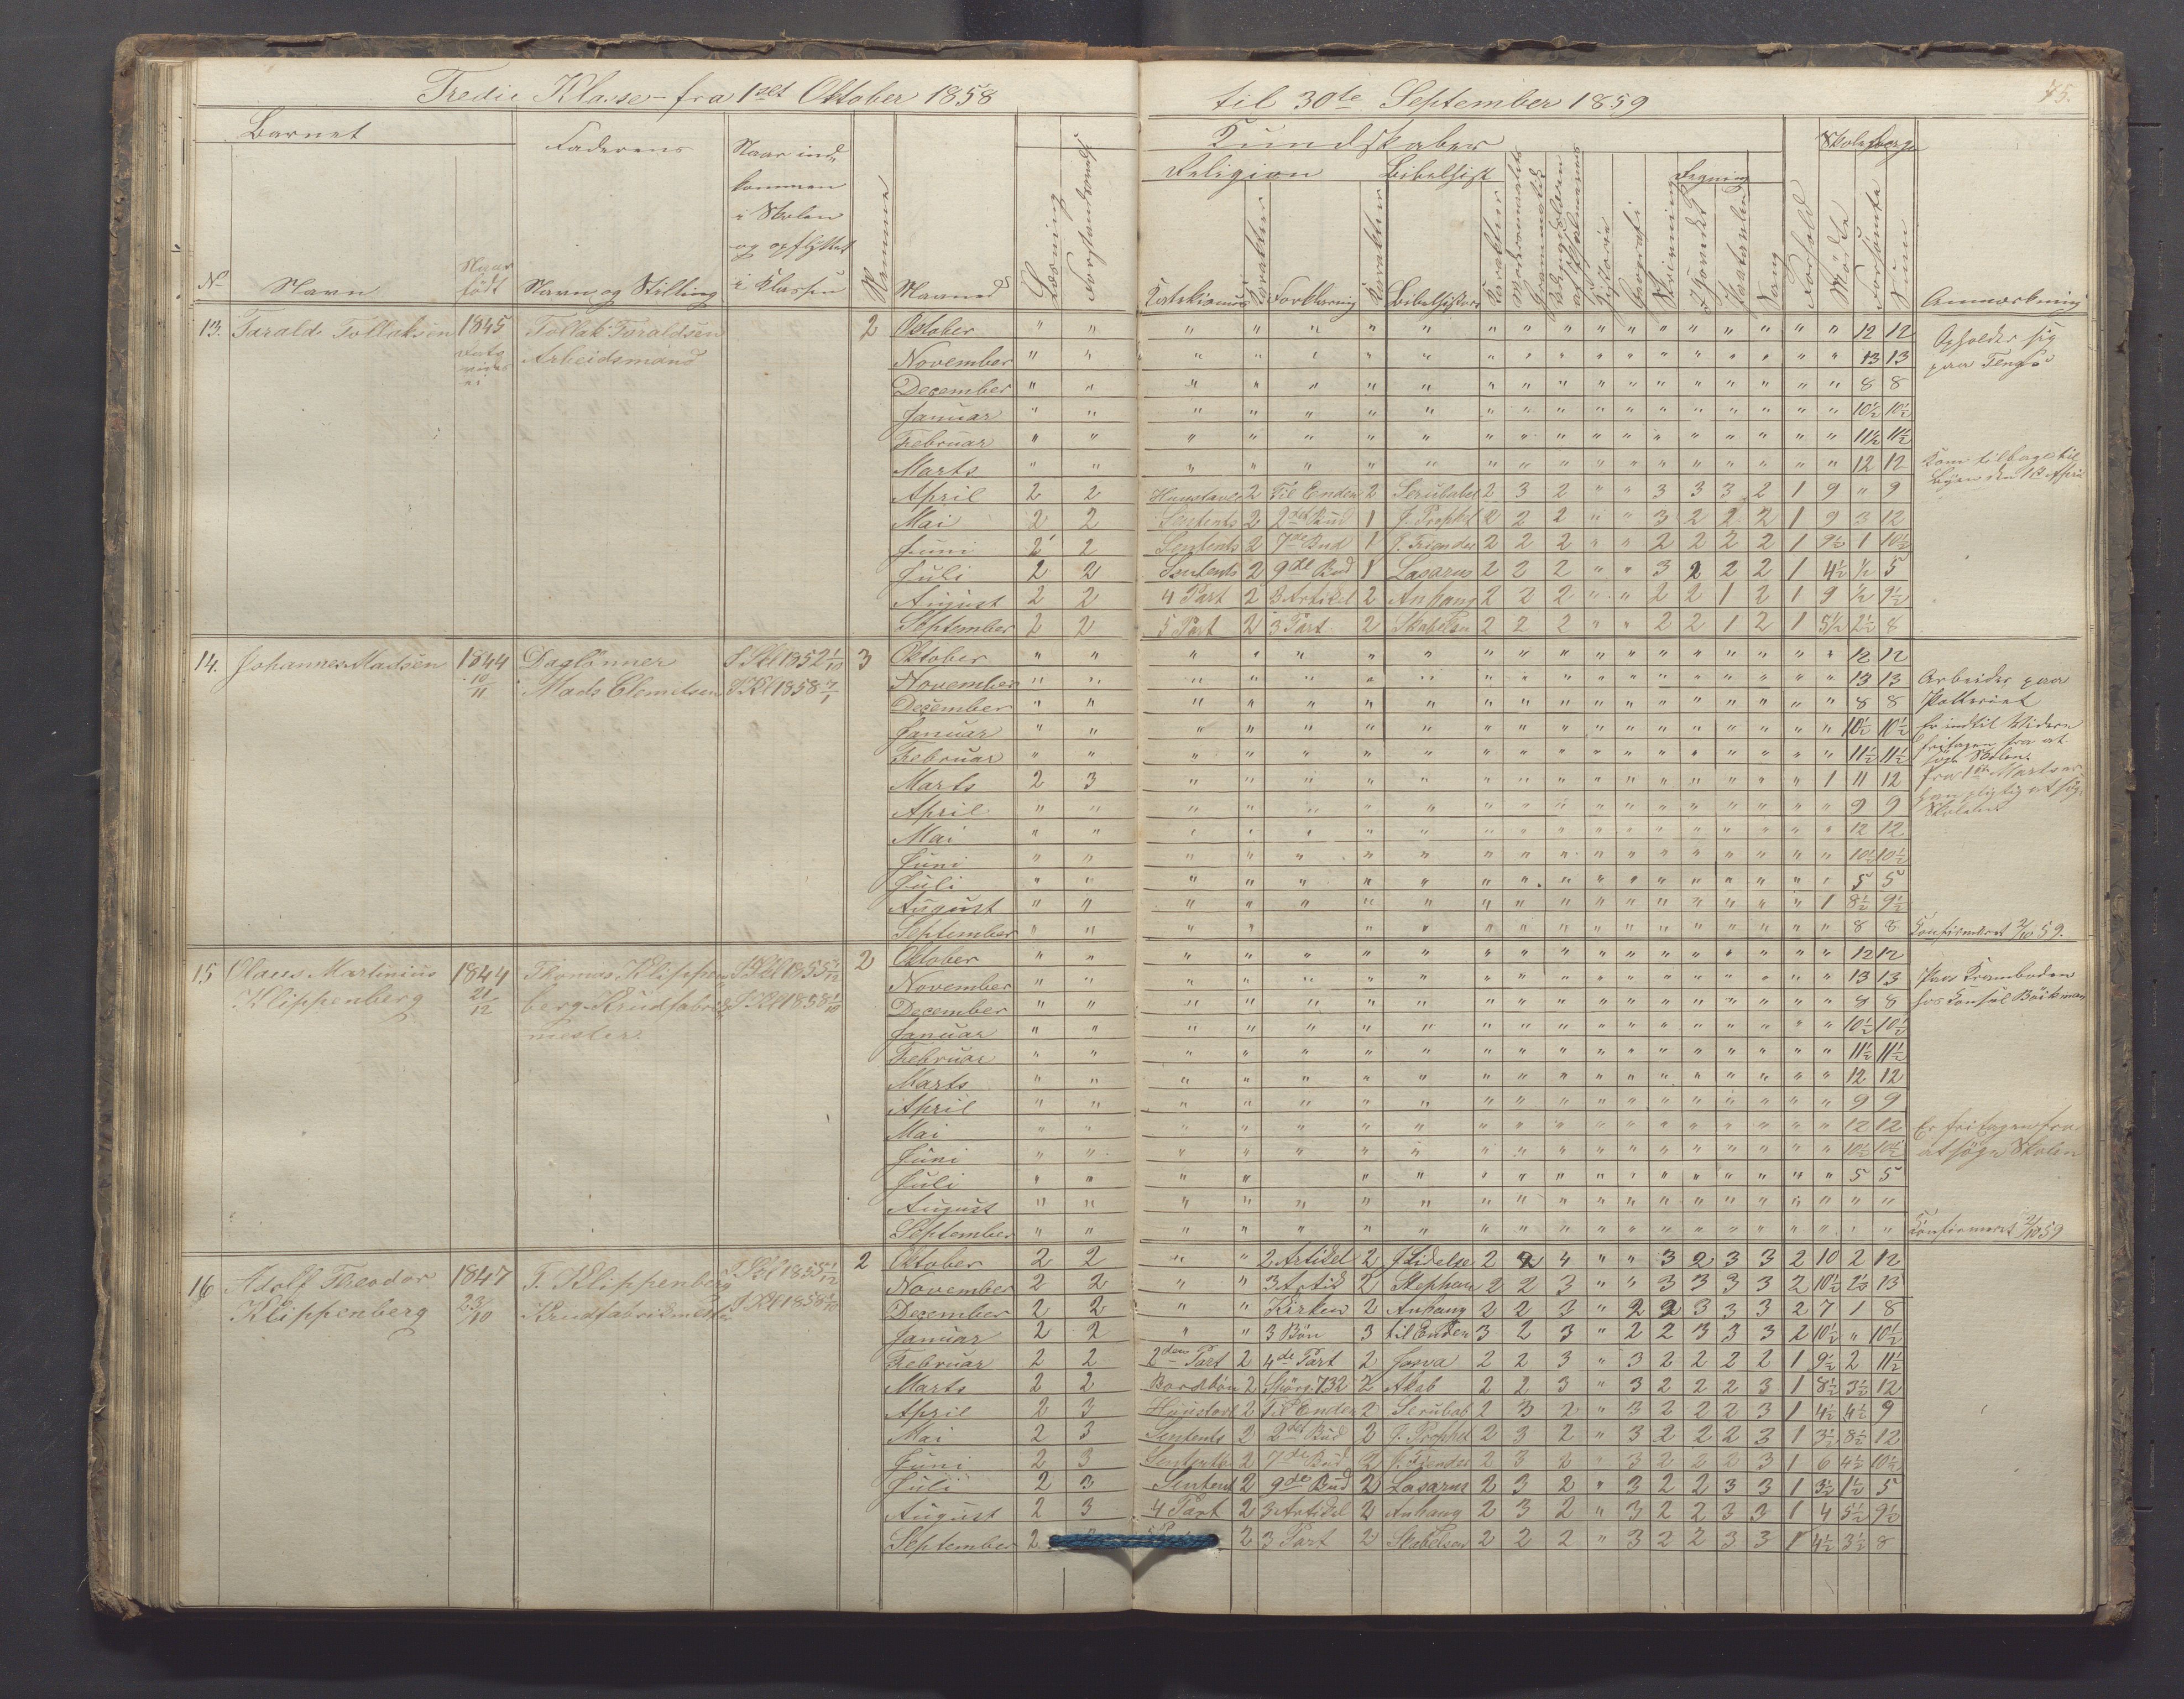 Tredie Klasse - fra 1ste Oktober 1858 til 30te September 1859
75.
Barnet
Faderens
Naar ind-
kommen
i Skolen
og opflyttet
i Klassen
Evne
Maaned
Læsning
Forstandsøvelse
Kundskaber
Religion
Bibelhist
Skolesøgn
Anmærkning
No
Navn
Naar
født
Navn og Stilling
Katekismus
Karakter
Forklaring
Karakter
Bibelhistorie
Karakter
Modersmaalets
Historie
Geografi
Skrivning
Regning
Tavleregning
Sang
Forhold
Mødte
Forsømte
Sum
13. Tarald Tollaksen 1845 Tollak Taraldsen 2
Arbeidsmand
Oktober " " " " " " " " " " " " " " " " " " " " 12 12 Opholder sig
November " " " " " " " " " " " " " " " " " " " " 13 13 paa
December " " " " " " " " " " " " " " " " " " " " 8 8
Januar " " " " " " " " " " " " " " " " " " " " 10½ 10½
Februar " " " " " " " " " " " " " " " " " " " " 11½ 11½
Marts " " " " " " " " " " " " " " " " " " " " 12 12 Kom tilbage til
Byen den 1ste April
April 2 2 Huustavle 2 Til Enden 2 Serubabel 2 3 2 " " 3 3 3 2 1 9 " 9
Mai 2 2 Sentents 2 2det Bud 1 J. Prophet 2 2 2 " " 3 2 2 2 1 9 3 12
Juni 2 2 Sentents 2 7de Bud 1 J. Fiender 2 2 2 " " 2 2 2 2 1 9½ 1 10½
Juli 2 2 Sentents 2 9de Bud 1 Lasarus 2 2 2 " " 3 2 2 2 1 4½ ½ 5
August 2 2 4 Part 2 3 Artikel 2 Anhang 2 2 2 " " 2 2 1 2 1 9 ½ 9½
September 2 2 5 Part 2 3 Part 2 Skabelsen 2 2 2 " " 2 2 1 2 1 5½ 2½ 8
14. Johannes Madsen 1844 Daglønner 3
10/11 Mads Clemetsen
Oktober " " " " " " " " " " " " " " " " " " " " 12 12
November " " " " " " " " " " " " " " " " " " " " 13 13 Arbeider paa
December " " " " " " " " " " " " " " " " " " " " 8 8 Potteriet
Januar " " " " " " " " " " " " " " " " " " " " 10½ 10½ Er indtil Videre
Februar " " " " " " " " " " " " " " " " " " " " 11½ 11½ fritagen fra at
søge Skolen.
Marts 2 3 " " " " " " " " " " " " " " " " " 1 11 12 fra 1ste Marts er
han pligtig at søge
April " " " " " " " " " " " " " " " " " " " " 9 9 Skolen
Mai " " " " " " " " " " " " " " " " " " " " 12 12
Juni " " " " " " " " " " " " " " " " " " " " 10½ 10½
Juli " " " " " " " " " " " " " " " " " " " " 5 5
August " " " " " " " " " " " " " " " " " " " 1 8½ 9½
September " " " " " " " " " " " " " " " " " " " 8 8 Confirmeret 2/10 59.
15 Claus Martinius 1844 Thomas Klippen- 2
Klippenberg 21/12 berg Krudfabrik
mester.
Oktober " " " " " " " " " " " " " " " " " " " " 12 12
November " " " " " " " " " " " " " " " " " " " " 13 13 Paa Kramboden
December " " " " " " " " " " " " " " " " " " " " 8 8 hos Consul Böckman
Januar " " " " " " " " " " " " " " " " " " " " 10½ 10½
Februar " " " " " " " " " " " " " " " " " " " " 11½ 11½
Marts " " " " " " " " " " " " " " " " " " " " 12 12
April " " " " " " " " " " " " " " " " " " " " 9 9
Mai " " " " " " " " " " " " " " " " " " " " 12 12 Er fritagen fra
Juni " " " " " " " " " " " " " " " " " " " " 10½ 10½ at søge Skolen
Juli " " " " " " " " " " " " " " " " " " " 5 5
August " " " " " " " " " " " " " " " " " " " " " "
September " " " " " " " " " " " " " " " " " " " " " " Confirmeret 2/10 59
16 Adolf Theodor 1847 T. Klippenberg 2
Klippenberg 23/10 Krudfabrikmester
Oktober 2 2 " " 2 Artikel 2 J. Lidelse 2 2 4 " " 3 2 3 3 2 10 2 12
November 2 2 " " 3 Artik 2 Stephan 2 2 3 " " 3 3 3 3 2 10½ 2½ 13
December 2 2 " " Kirken 2 Anhang 2 2 3 " 2 2 3 3 3 2 7 1 8
Januar 2 2 " " 3 Bön 3 til Enden 3 2 3 " 2 2 3 3 3 2 10½ " 10½
Februar 2 2 2den Part 2 4de Part 2 Josva 2 2 3 " 3 2 2 2 2 1 9½ 2 11½
Marts 2 2 Bordbön 2 Spörg. 732 2 Akab 2 2 3 " 3 2 2 2 3 1 8½ 3½ 12
April 2 3 Huustavl 2 Til Enden 2 Serubab 2 3 2 " 3 2 2 2 3 1 4½ 4½ 9
Mai 2 3 Sentents 2 2det Bud 2 J. Prophet 2 3 2 " 3 2 2 2 3 1 3½ 8½ 12
Juni 2 3 Sentents 2 7de Bud 2 J. Fiender 2 3 2 " 3 2 2 2 3 1 6 4½ 10½
Juli 2 3 Sentent 2 9de Bud 2 Lasarus 2 3 2 " 3 2 2 3 3 1 3½ 1½ 5
August 2 3 4 Part 2 3 Artikel 2 Anhang 2 3 2 " 3 2 2 3 3 1 4 5½ 9½
September 2 2 3 Part 2 Skabelsen 2 2 2 " 3 2 2 3 3 1 4½ 3½ 8